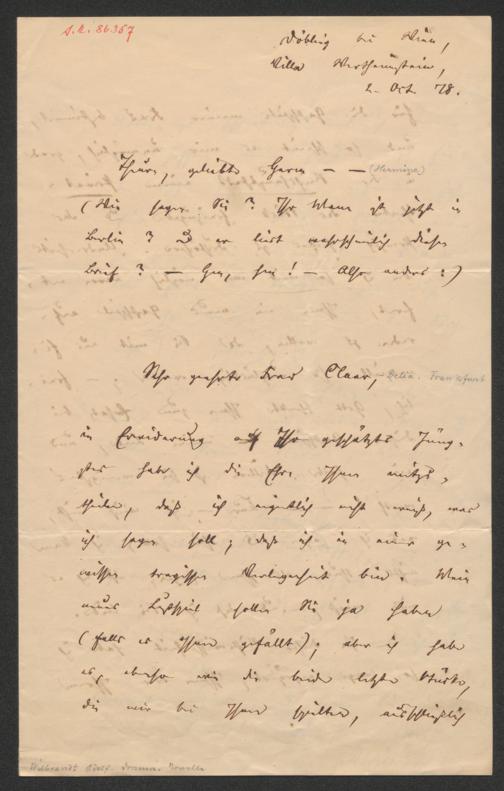 J.N. 86367
Döbling bei Wien,
Villa Wertheimstein,
2. Oct. 78.
Theure, geliebte Herm — — (Hermine)
(Wie sagen Sie? Ihr Mann ist jetzt in
Berlin? Und er liest wahrscheinlich diesen
Brief? — — Also anders:)
Sehr geehrte Frau Claar, – Delia. Frankfurt
in Erwiderung auf Ihr geschätztes Jüng-
stes habe ich die Ehre Ihnen mitzu-
theilen, daß ich eigentlich nicht weiß, was
ich sagen soll; daß ich in einer ge-
wissen tragischen Verlegenheit bin. Mein
neues Lustspiel sollen Sie ja haben
(falls es Ihnen gefällt); aber ich habe
es, ebenso wie die beiden letzten Stücke,
die wir bei Ihnen spielten, ausschließlich
Wilbrandt Adolf. Drama. Novelle